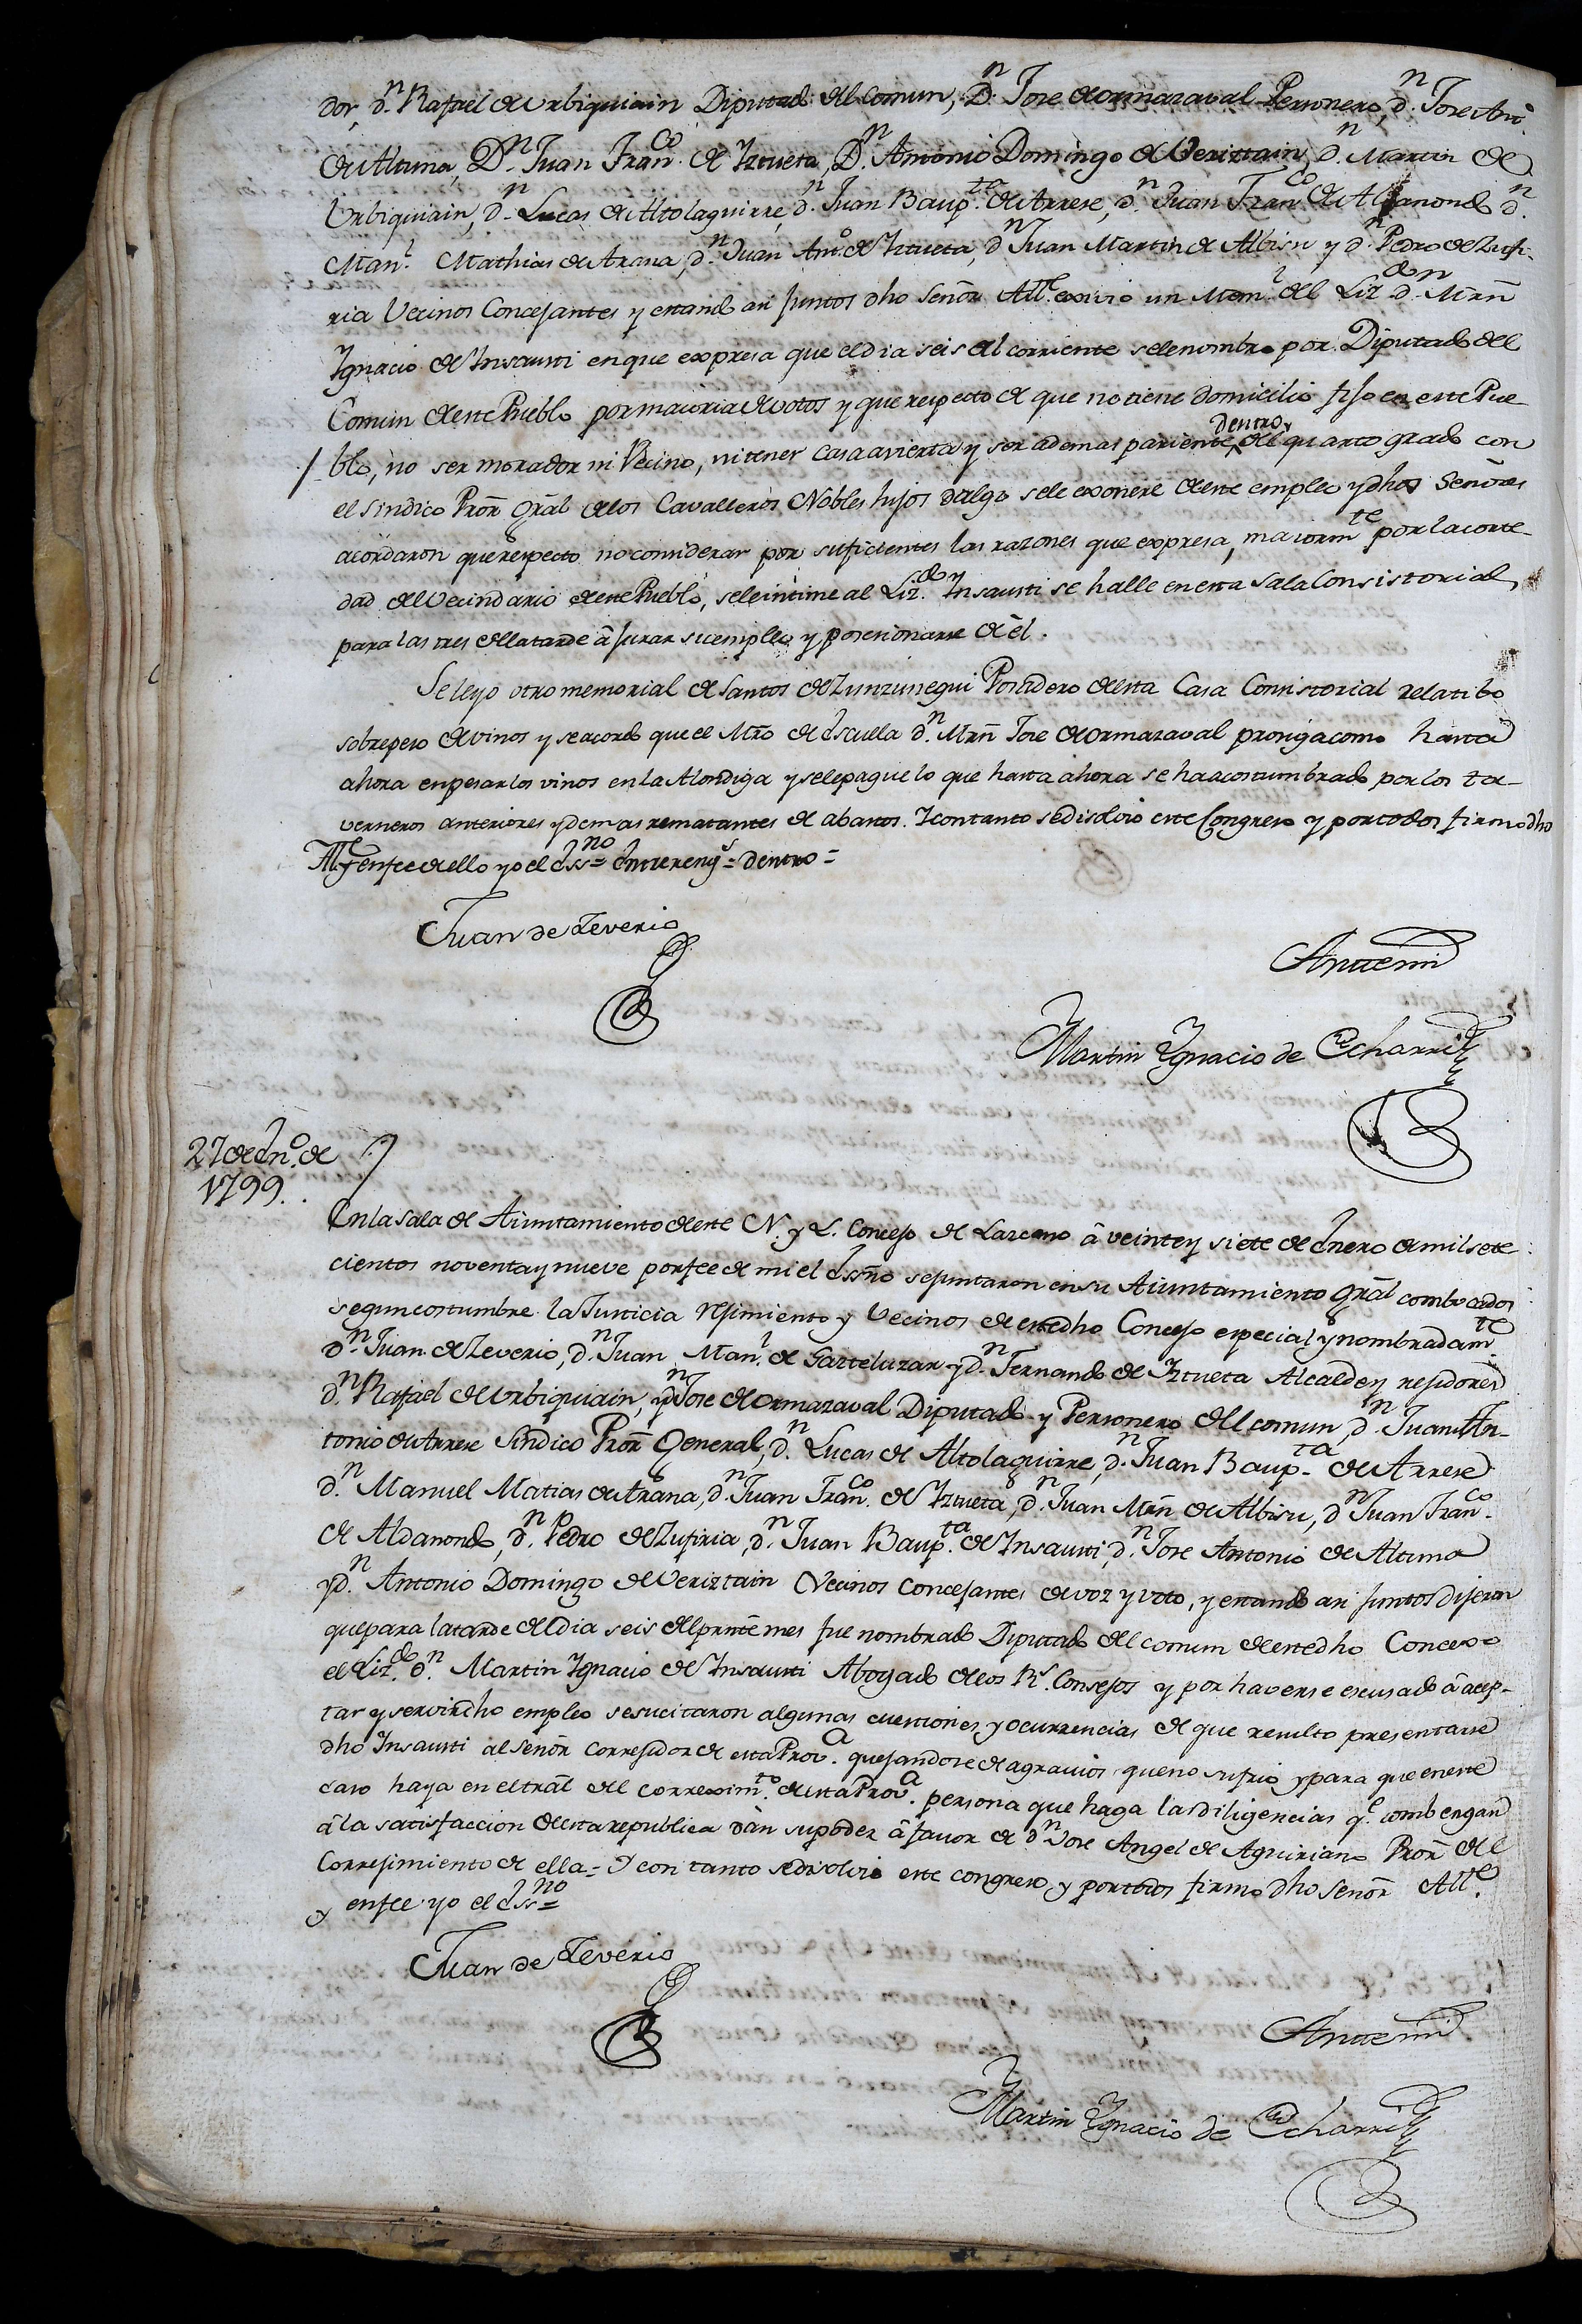 dor, d.n Rafael de Urbiquiain Diputado del Comun, D.n Jose de Ormazaval Personero, d.n Jose Ant.o
de Altuna, D.n Juan Fran.co de Yztueta, D.n Antonio Domingo de Veriztain, d.n Martin de
Urbiquiain, d.n Lucas de Altolaguirre, d.n Juan Baup.ta de Arrese, d.n Juan Fran.co de Aldanondo d.n
Man.l Mathias de Arana, d.n Juan Ant.o de Yztueta, d.n Juan Martin de Albisu y d.n Pedro de Zufi-
ria Vecinos Concejantes y estando asi juntos dho Señor All.e exivio un Mem.l del Liz.do d.n Mrñ
Ygnacio de Ynsausti en que expresa que el dia seis del corriente se le nombro por Diputado del
Comun de este Pueblo por maioria de votos y que respecto de que no tiene domicilio fijo en este Pue-
blo, no ser morador ni Vecino, ni tener casa avierta y ser ademas pariente dentro del quarto grado con
el sindico Pror Gral de los Cavalleros Nobles hijos dalgo se le exonere de este empleo y dhos Señores
acordaron que respecto no considerar por suficientes las razones que expresa, maiorm.te por la corte-
dad del Vecindario de este Pueblo, se le intime al Liz.do Ynsausti se halle en esta Sala Consistorial,
para las tres de la tarde â jurar su empleo y posesionarse de èl.
Se leyo otro memorial de Santos de Zunzunegui Posadero de esta Casa Consistorial relatibo
sobre peso de vinos y se acordo que el Mro de Escuela d.n Mrñ Jose de Ormazaval prosiga como hasta
ahora en pesar los vinos en la Alondiga y se le pague lo que hasta ahora se ha acostumbrado por los ta-
verneros anteriores y demas rematantes de abastos. Y con tanto se disolvio este Congreso y por todos firmo dho
All.e y en fee de ello yo el Ess.no = Entrereng.s = dentro =
Juan de Zeverio
Antemi
Martin Ygnacio de Echarri
27 de En.o de
1799.
En la sala de Aiuntamiento de este N. y L. Concejo de Lazcano â veinte y siete de Enero de mil sete-
cientos noventa y nueve por fee de mi el Essño se juntaron en su Aiuntamiento Gral combocados
segun costumbre la Justicia rejimiento y Vecinos de este dho Concejo especial y nombradam.te
D.n Juan de Zeverio, d.n Juan Man.l de Garteluzar y d.n Fernando de Yztueta Alcalde y rejidores
d.n Rafael de Urbiquiain, y d.n Jose de Ormazaval Diputado y Personero del comun, d.n Juan An-
tonio de Arrese Sindico Pror General, d.n Lucas de Altolaguirre, d.n Juan Baup.ta de Arrese
d.n Manuel Matias de Arana, d.n Juan Fran.co de Yztueta, d.n Juan Mrñ de Albisu, d.n Juan Fran.co
de Aldanondo, d.n Pedro de Zufiria, d.n Juan Baup.ta de Ynsausti, d.n Jose Antonio de Altuna
y d.n Antonio Domingo de Veriztain Vecinos Concejantes de voz y voto, y estando asi juntos dijeron
que para la tarde del dia seis del prnte mes fue nombrado Diputado del comun de este dho Concejo
el Liz.do d.n Martin Ygnacio de Ynsausti Abogado de los R.s Consejos y por haverse escusado â acep-
tar y servir dho empleo se sucitaron algunas cuestiones y ocurrencias de que resulto presentarse
dho Ynsausti al Señor Corregidor de esta Prov.a quejandose de agravios que no sufrio y para que en este
caso haya en el tral del Correxim.to de esta Prov.a persona que haga las diligencias q.e combengan
â la satisfaccion de esta republica dàn su poder â favor de d.n Jose Angel de Aguiriano Pror del
Correjimiento de ella = Y con tanto se disolvio este congreso y por todos firmo dho señor All.e
y en fee yo el Ess.no =
Juan de Zeverio
Antemi
Martin Ygnacio de Echarri